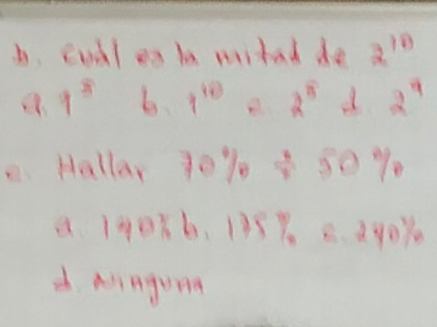 b. cuál es la mitad de 2¹⁰
a. 1⁵ b. 1¹⁰ c. 2⁵ d. 2⁹
c. Hallar 70% ÷ 50%
a. 140% b. 135% c. 240%
d. Ninguna